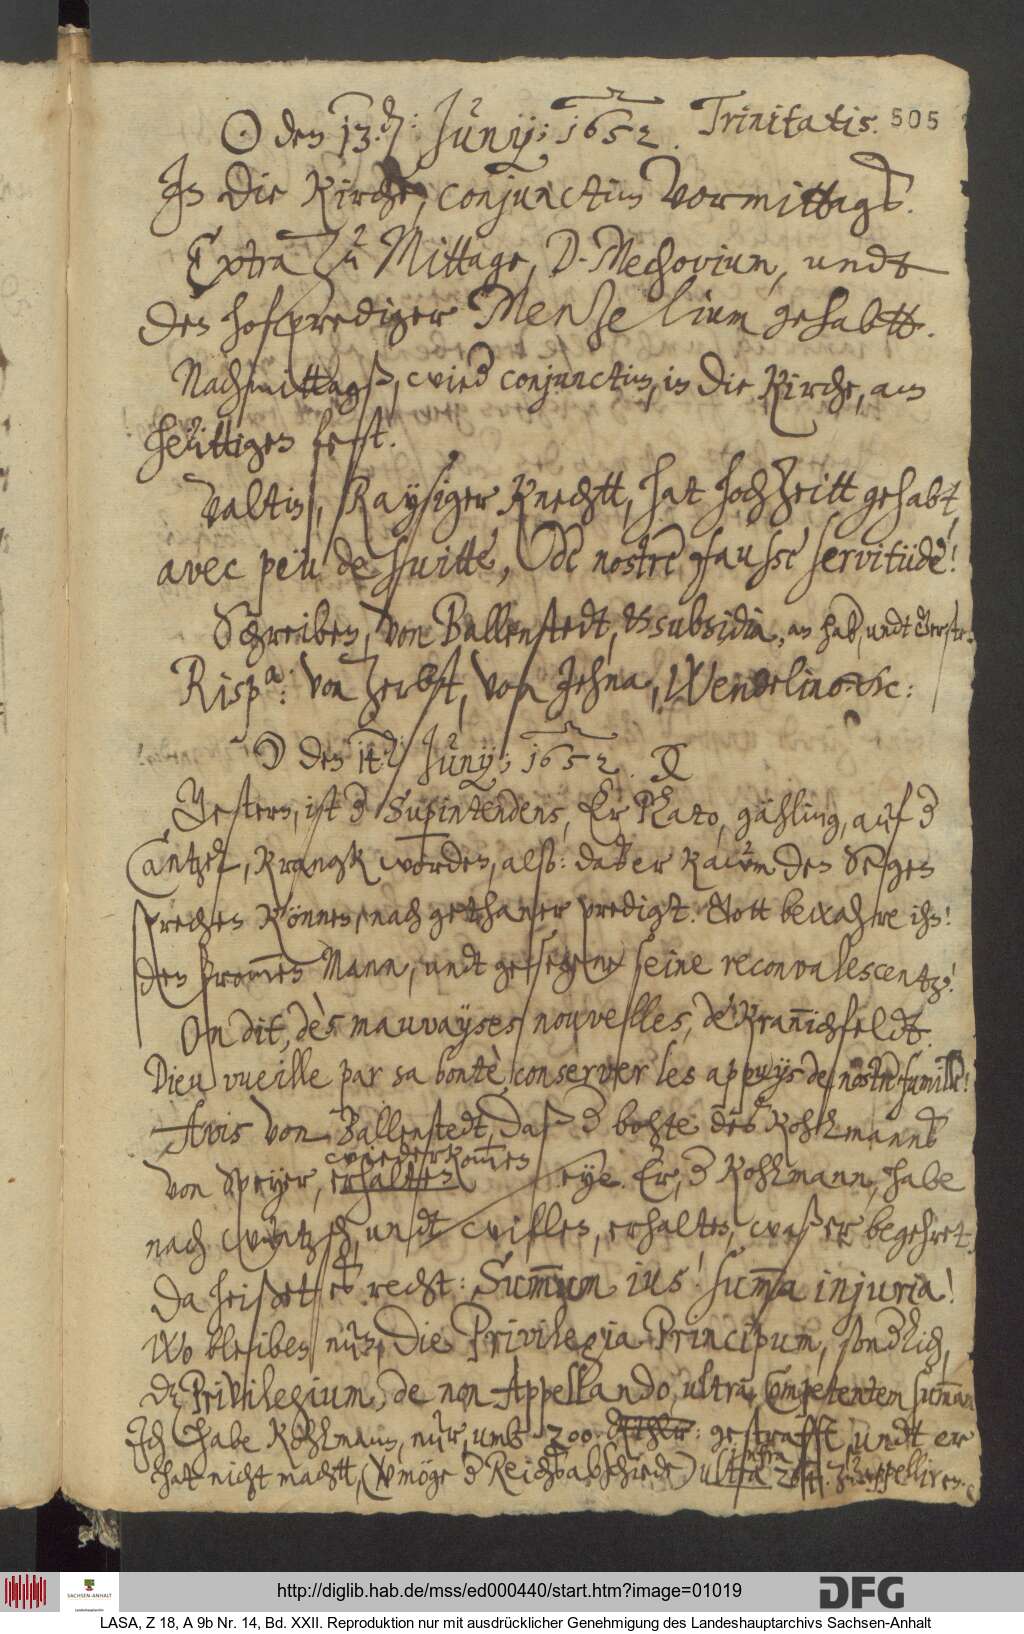 ☉ den 13.den: Junij; 1652. Trinitatis. 505
In die Kirche, conjunctim Vormittags.
Extra zu Mittage, D. Mechovium, undt
den hofprediger Menselium gehabtt.
Nachmittagß, wied conjunctim, in die Kirche, am
heüttigen fest.
Valtin, Raysiger Knechtt, hat hochzeitt gehabt,
avec peu de suitte, & de nostre fausse servitüde!
Schreiben, von Ballenstedt, & subsidia, an hab, undt
Rispa: von Zerbst, von Jehna, Wendelino &c:
☽ den 14den: Junij; 1652.
Gestern, ist d Sup̄intendens, Er Plato, gähling, auf d
Cantzel, Krangk worden, also: daß er kaum den Segen
sprechen können, nach gethaner predigt. Gott bewahre ihn!
den from̄en Mann, undt gesegene seine reconvalescentz!
On dit, dès mauvayses nouvelles, de Kranichfeldt.
Dieu vueille par sa bontè, conserver les appuys de nostre famille!
Avis von Ballenstedt, daß d bohte des Kohlmanns
wiederkom̄en
von Speyer, erhalten seye. Er, d Kohlmann, habe
nach wuntzsch, undt willen, erhalten, waß er begehret,
Da heißet es recht: Sum̄um ius! sum̄a injuria!
Wo bleiben nun, die Privilegia Principum, sondlich,
de Privilegium, de non Appellando, ultra Competentem sum̄am
Ich habe Kohlmann, nur, umb 200 Rthlr: gestrafft, undt er
infra
hat nicht machtt, (Vmöge d Reichsabschiede) ultra zu appelliren.
http://diglib.hab.de/mss/ed000440/start.htm?image=01019
DFG
SACHSEN-ANHALT
LASA, Z 18, A 9b Nr. 14, Bd. XXII. Reproduktion nur mit ausdrücklicher Genehmigung des Landeshauptarchivs Sachsen-Anhalt